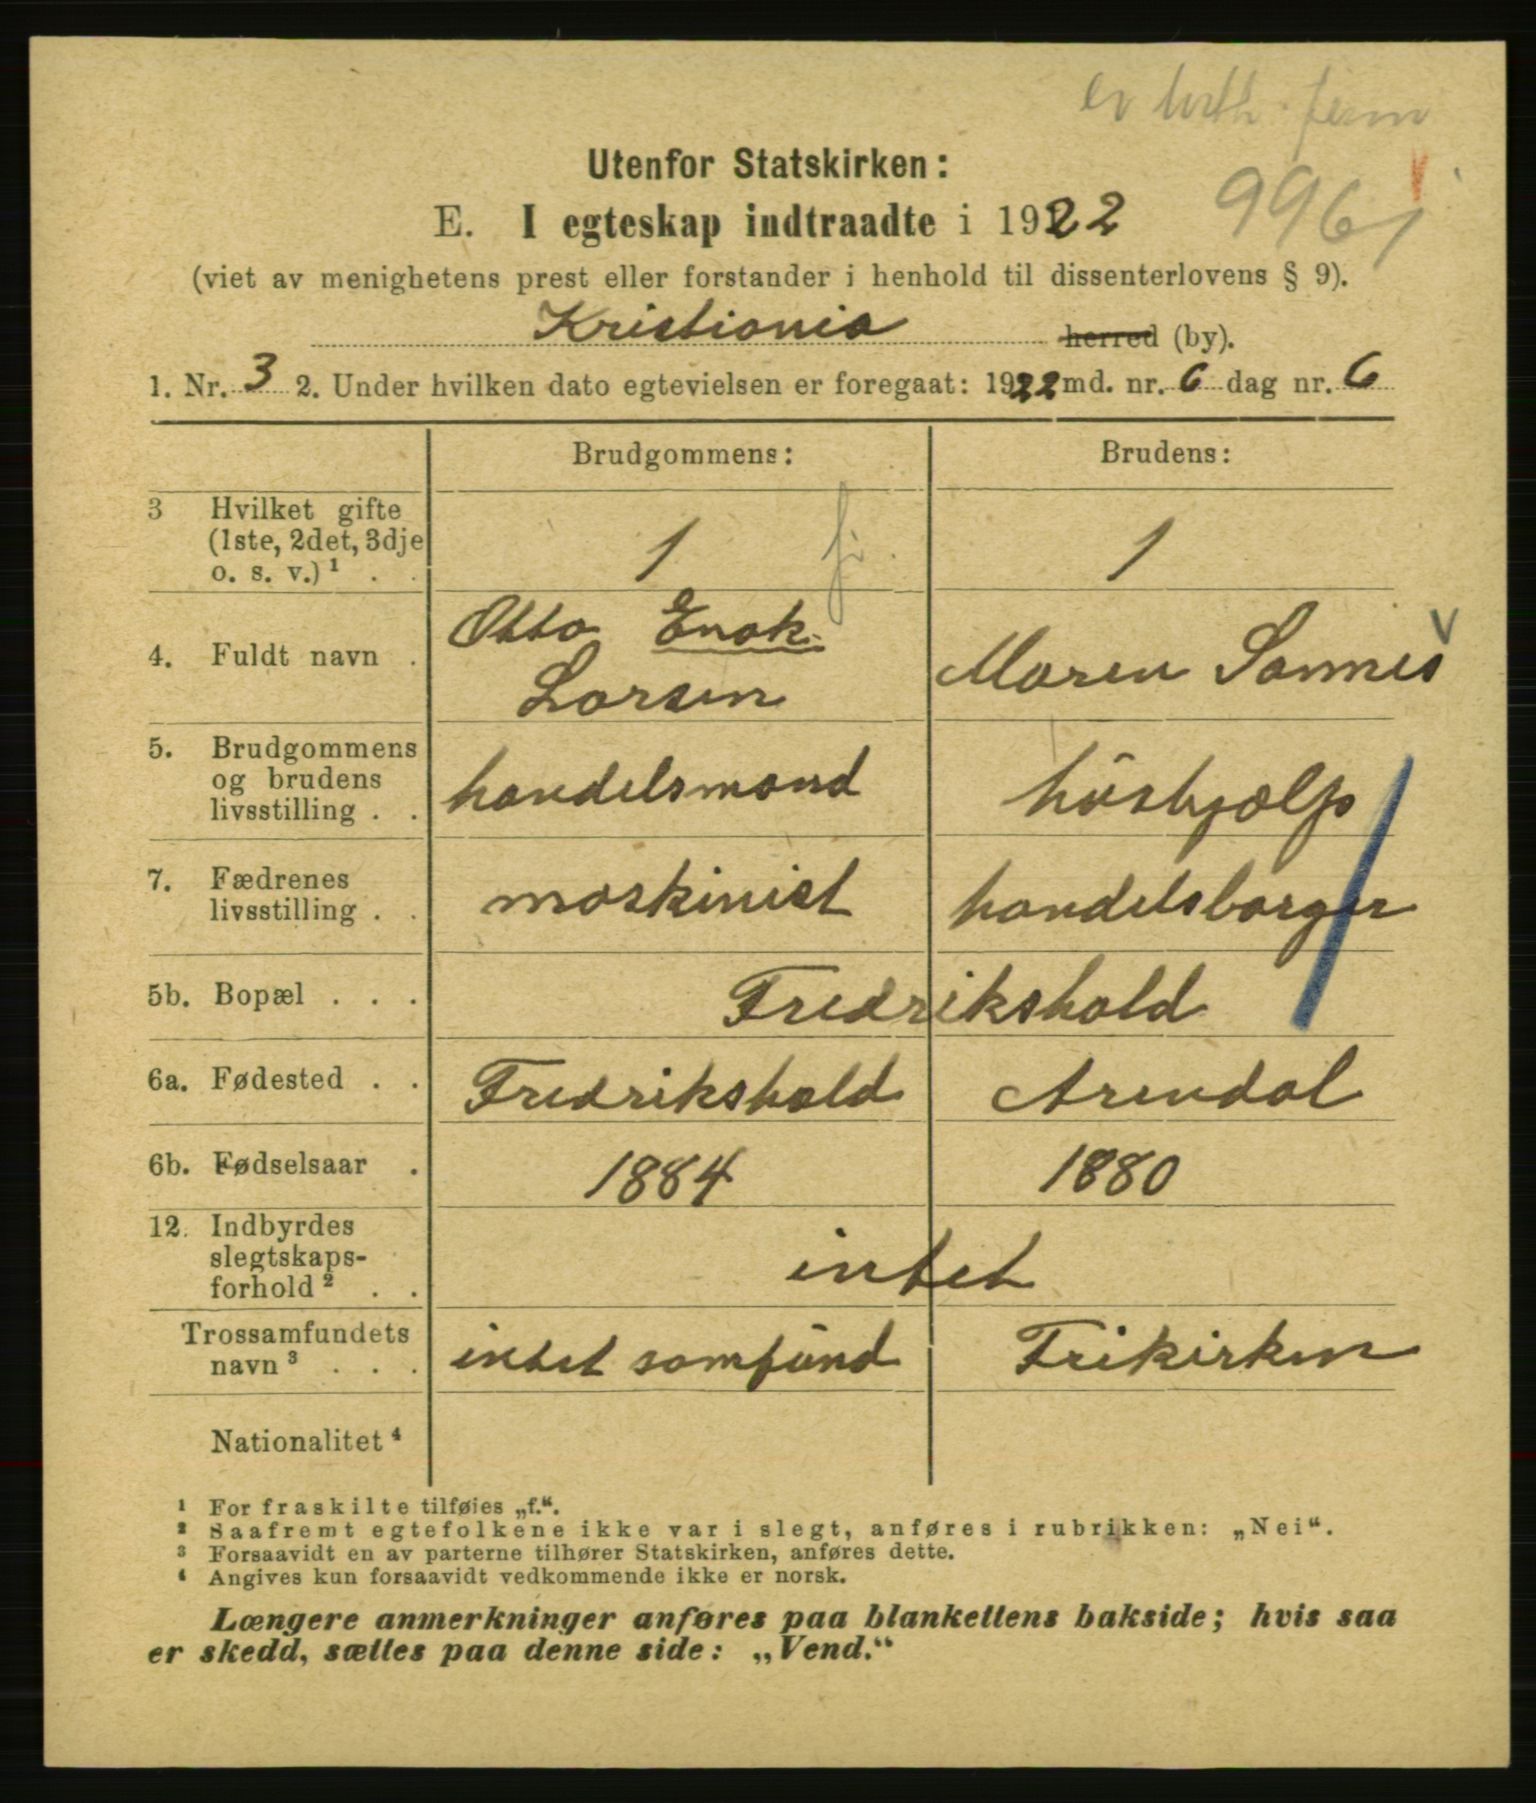 er luth. fri
9961
Utenfor Statskirken:
E. I egteskap indtraadte i 1922
(viet av menighetens prest eller forstander i henhold til dissenterlovens § 9).
Kristiania herred (by).
1. Nr. 3 2. Under hvilken dato egtevielsen er foregaat: 1922 md. nr. 6 dag nr. 6
Brudgommens: Brudens:
3 Hvilket gifte
(1ste, 2det, 3dje
o. s. v.)¹ . . 1 1
4. Fuldt navn . Otto Enok. Larsen Maren Sannes
5. Brudgommens
og brudens
livsstilling . . handelsmand hushjælp
7. Fædrenes
livsstilling . . maskinist handelsborger
5b. Bopæl . . . Fredrikshald
6a. Fødested . . Fredrikshald Arendal
6b. Fødselsaar . 1884 1880
12. Indbyrdes
slegtskaps-
forhold² . . intet
Trossamfundets
navn³ . . . intet samfund Frikirken
Nationalitet⁴
¹ For fraskilte tilføies „f.“.
² Saafremt egtefolkene ikke var i slegt, anføres i rubrikken: „Nei“.
³ Forsaavidt en av parterne tilhører Statskirken, anføres dette.
⁴ Angives kun forsaavidt vedkommende ikke er norsk.
Længere anmerkninger anføres paa blankettens bakside; hvis saa
er skedd, sættes paa denne side: „Vend.“